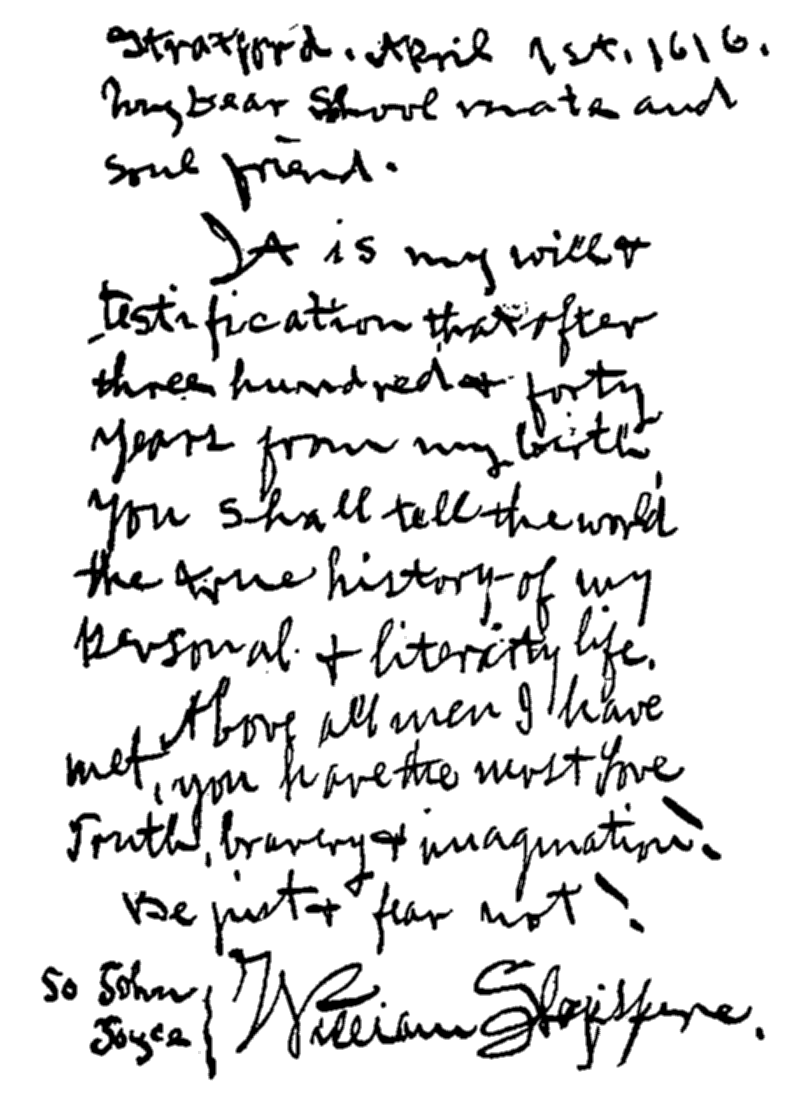 Stratford. April 1st. 1616.
My Dear Shool mate and
soul friend.
It is my will &
testification that after
three hundred & forty
years from my birth
you shall tell the world
the true history of my
personal & literary life.
Above all men I have
met, you have the most love
Truth, bravery & imagination!
Be just & fear not!
So John
Joyce
William Shaxspere.